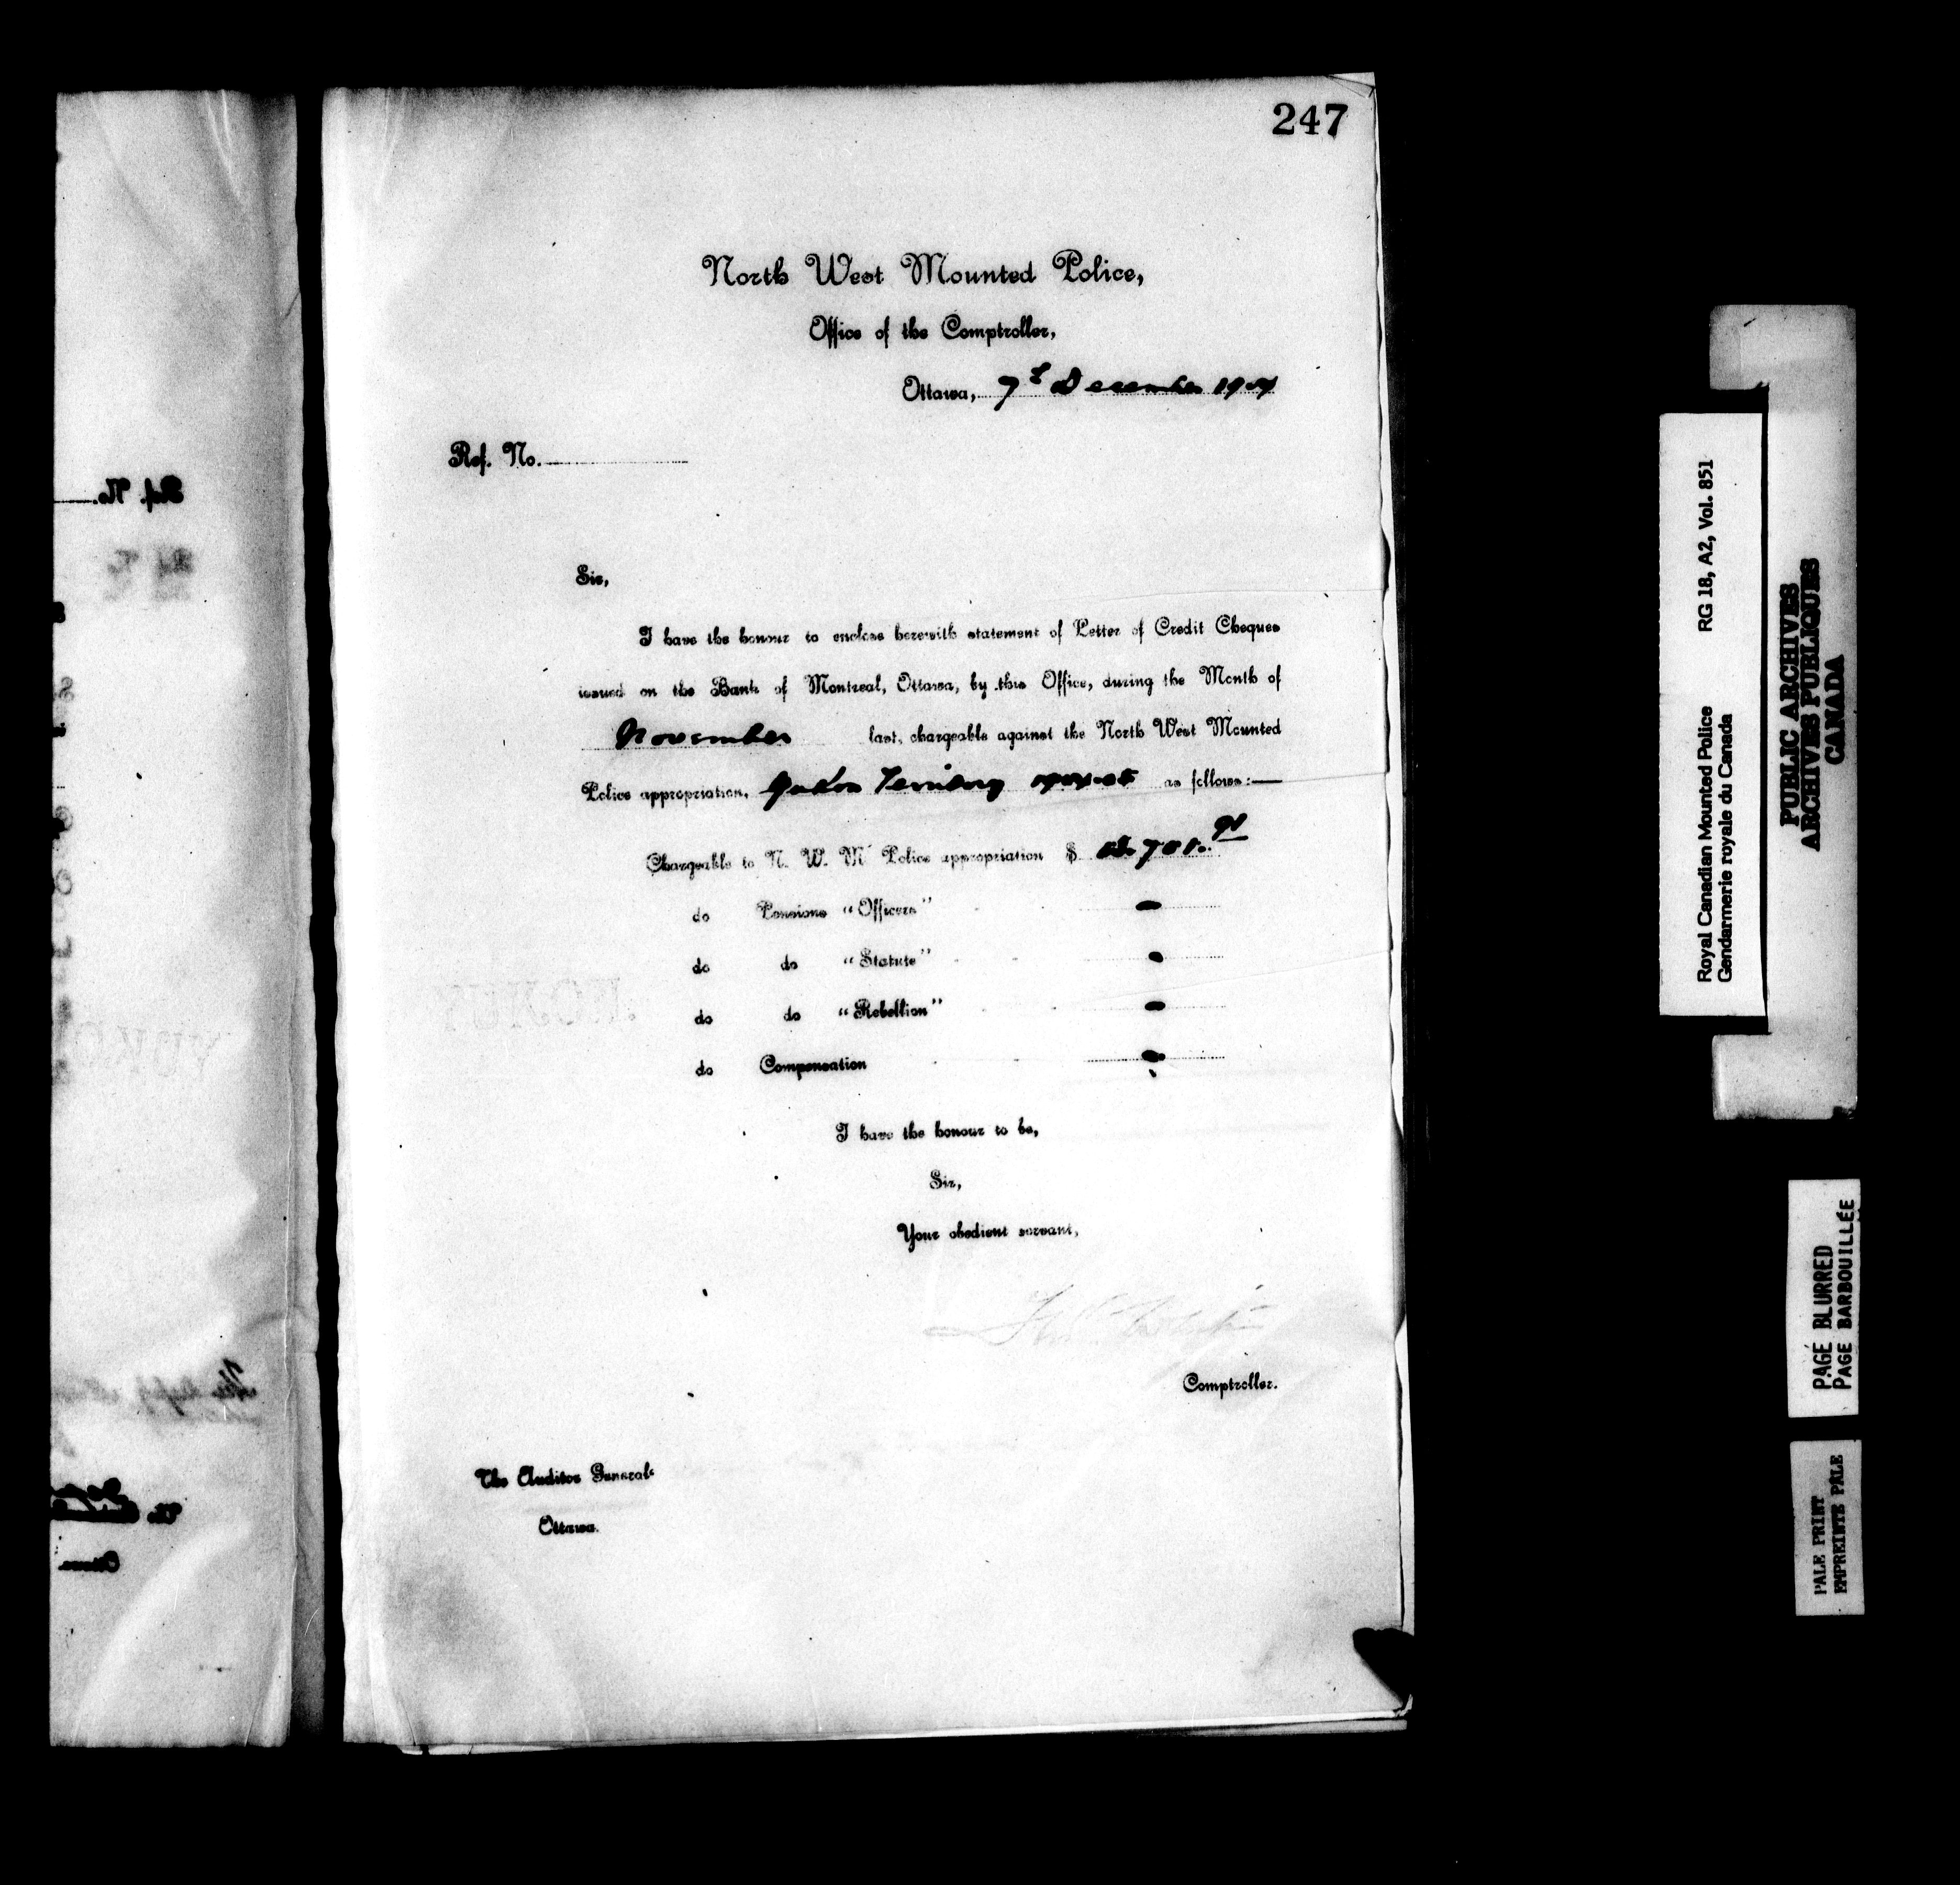 247
North West Mounted Police,
Office of the Comptroller,
Ottawa, 7th December 1904
Ref. No.
Sir,
I have the honour to enclose herewith statement of Letter of Credit Cheques
issued on the Bank of Montreal, Ottawa, by this Office, during the Month of
November last, chargeable against the North West Mounted
Police appropriation, Yukon Territory 1904-05 as follows:—
Chargeable to N. W. M. Police appropriation $
do Pensions "Officers"
do do "Statute"
do do "Rebellion"
do Compensation
I have the honour to be,
Sir,
Your obedient servant,
Comptroller.
The Auditor General
Ottawa.
Royal Canadian Mounted Police RG 18, A2, Vol. 851
Gendarmerie royale du Canada
PUBLIC ARCHIVES
ARCHIVES PUBLIQUES
CANADA
PAGE BLURRED
PAGE BARBOUILLÉE
PALE PRINT
EMPREINTE PÂLE